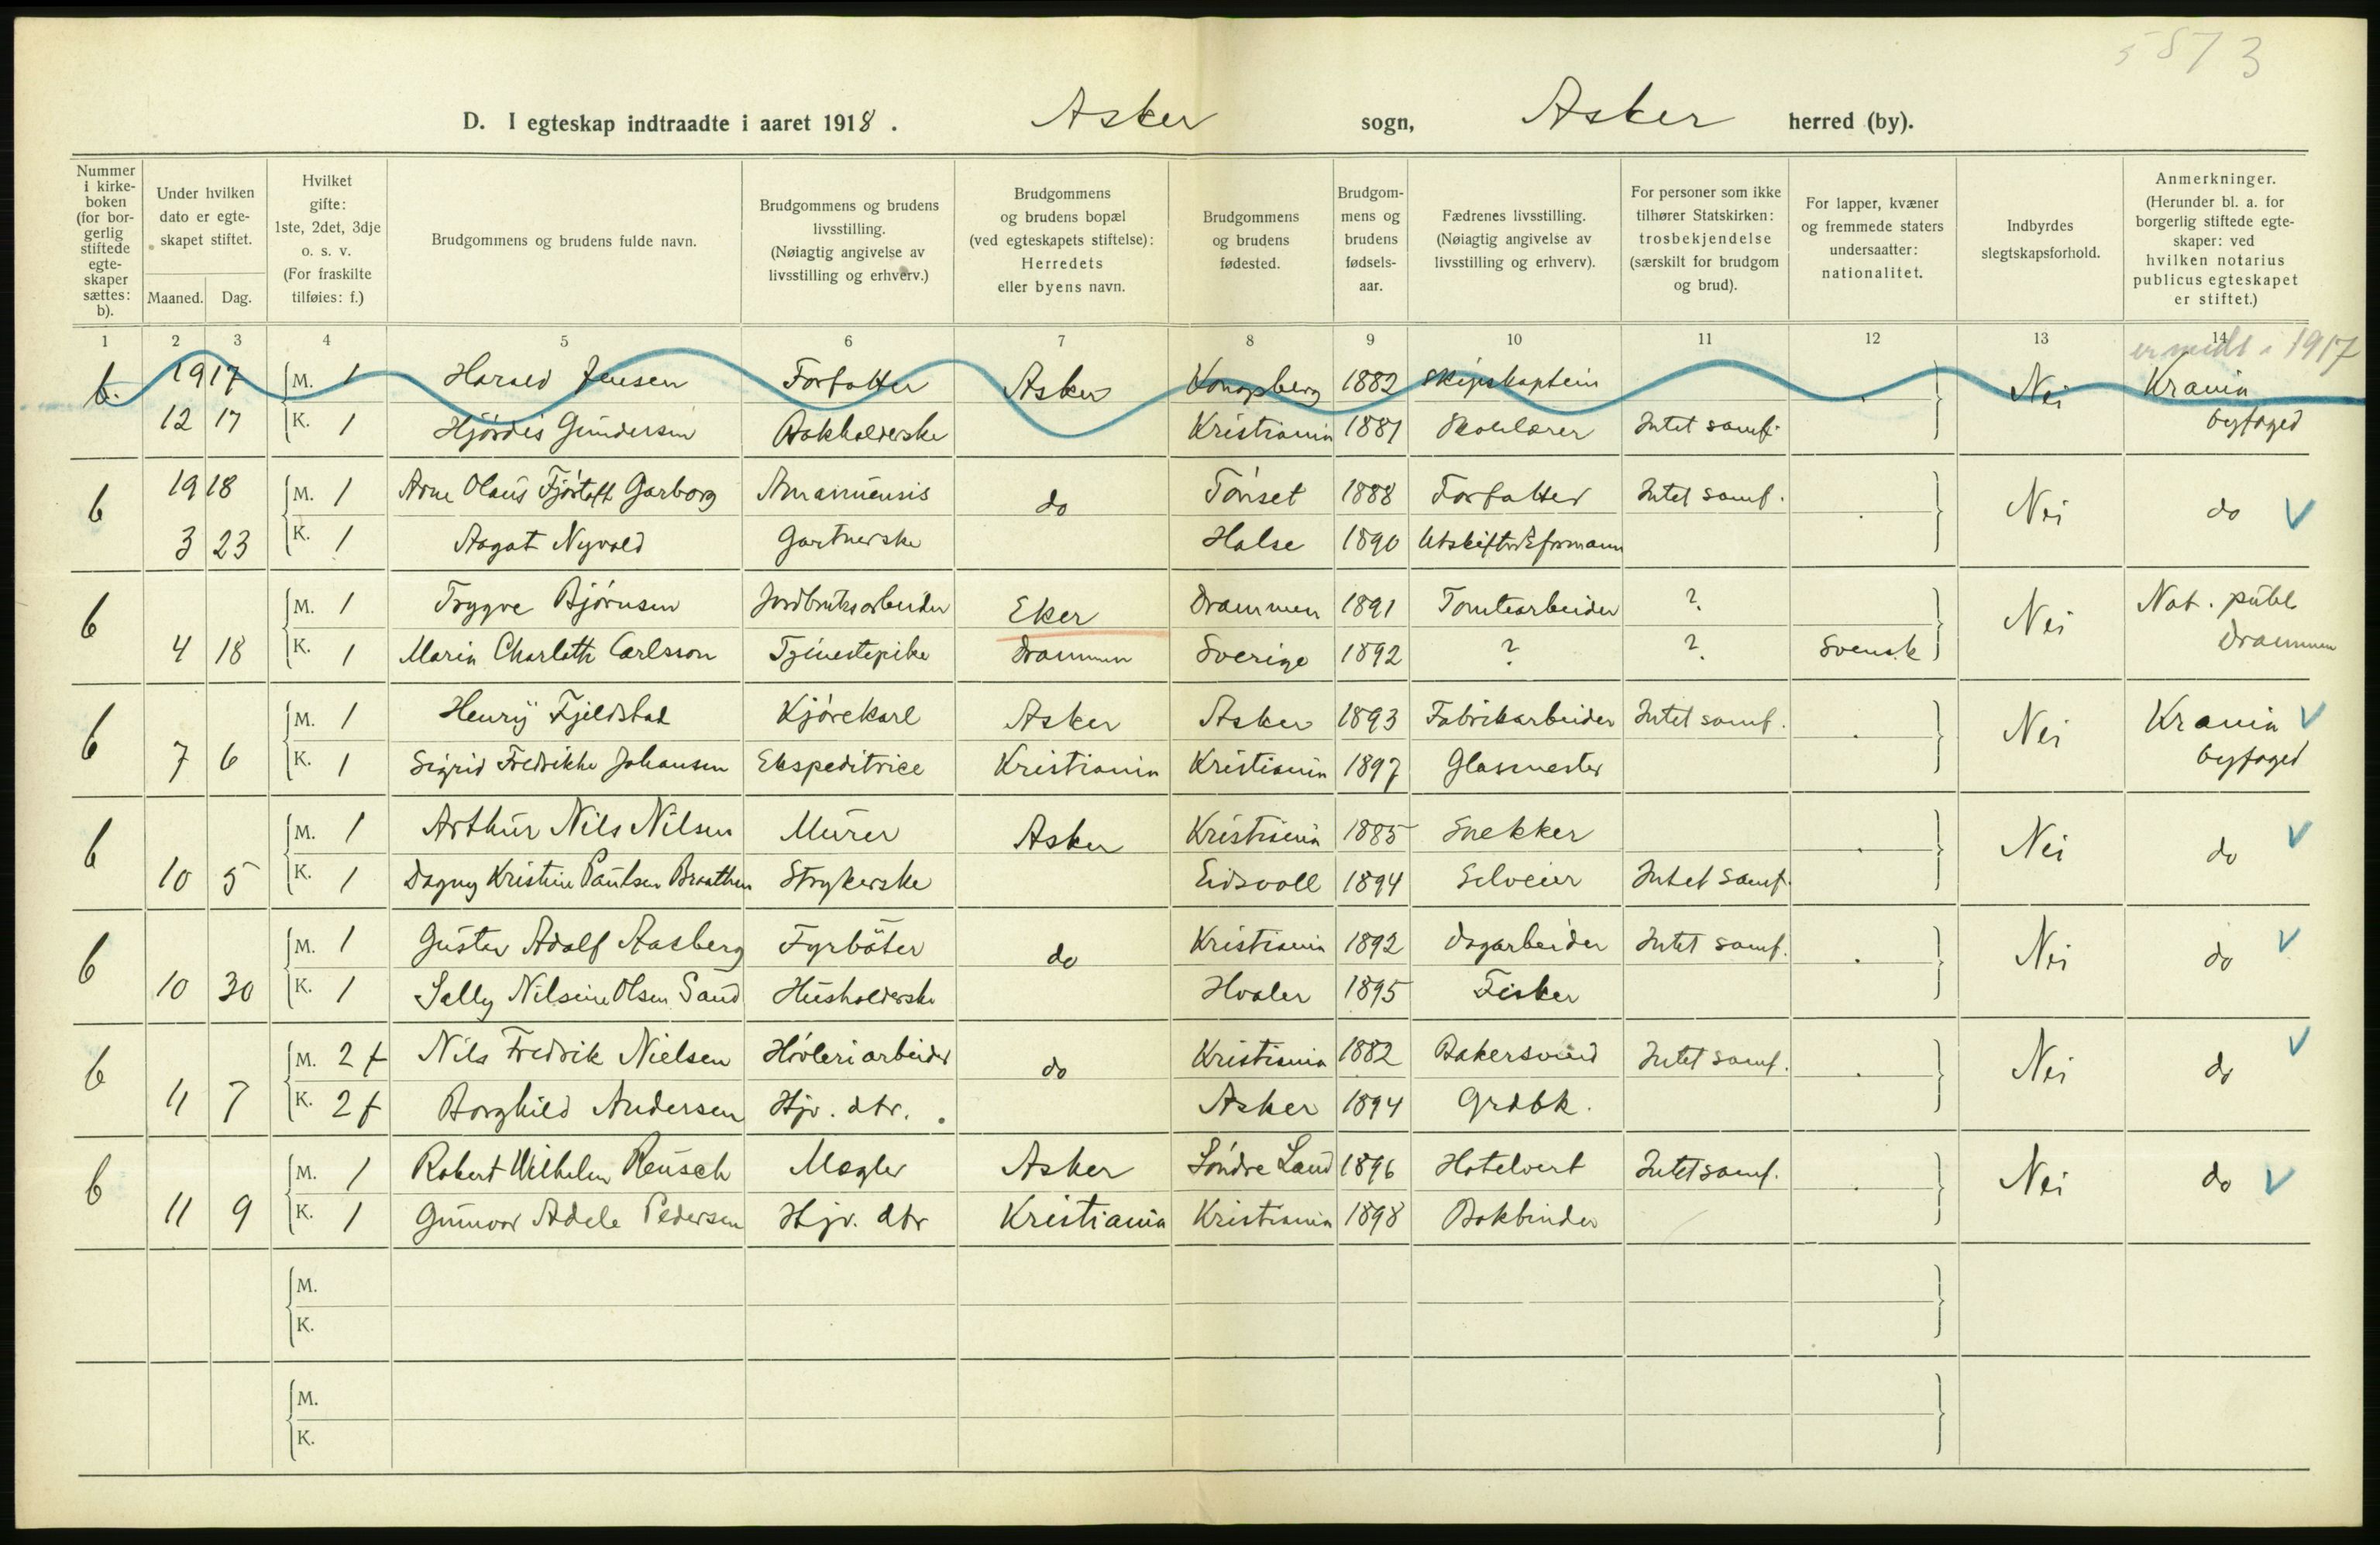 5873
D. I egteskap indtraadte i aaret 1918. Asker sogn, Asker herred (by).
Nummer i kirke-boken (for bor-gerlig stiftede egte-skaper sættes: b).
Under hvilken dato er egte-skapet stiftet.
Maaned. Dag.
Hvilket gifte: 1ste, 2det, 3dje o. s. v. (For fraskilte tilføies: f.)
Brudgommens og brudens fulde navn.
Brudgommens og brudens livsstilling. (Nøiagtig angivelse av livsstilling og erhverv.)
Brudgommens og brudens bopæl (ved egteskapets stiftelse): Herredets eller byens navn.
Brudgommens og brudens fødested.
Brudgom-mens og brudens fødsels-aar.
Fædrenes livsstilling. (Nøiagtig angivelse av livsstilling og erhverv).
For personer som ikke tilhører Statskirken: trosbekjendelse (særskilt for brudgom og brud).
For lapper, kvæner og fremmede staters undersaatter: nationalitet.
Indbyrdes slegtskapsforhold.
Anmerkninger. (Herunder bl. a. for borgerlig stiftede egte-skaper: ved hvilken notarius publicus egteskapet er stiftet.)
1 2 3 4 5 6 7 8 9 10 11 12 13 14
er medt i 1917
b. 1917 M. 1 Harald Jensen Forfatter Asker Kongsberg 1882 Skipskaptein Nei Krania
12 17 K. 1 Hjørdis Gundersen Bokholderske Kristiania 1881 Skolelærer Intet samf. byfoged
b 1918 M. 1 Arne Olaus Fjørtoft Garborg Amanuensis do Tönset 1888 Forfatter Intet samf. Nei do V
3 23 K. 1 Aagat Nyvold Gartnerske Halse 1890 Utskiftn.formann
b M. 1 Trygve Bjørnsen Jordbruksarbeider Eker Drammen 1891 Tomtearbeider ? Nei Not. publ
4 18 K. 1 Maria Charlotte Carlsson Tjenestepike Drammen Sverige 1892 ? ? Svensk Drammen
b M. 1 Henry Fjeldstad Kjørekarl Asker Asker 1893 Fabrikarbeider Intet samf. Nei Krania V
7 6 K. 1 Sigrid Fredrikke Johansen Ekspeditrice Kristiania Kristiania 1897 Glasmester byfoged
b M. 1 Arthur Nils Nilsen Murer Asker Kristiania 1885 Snekker Nei do V
10 5 K. 1 Dagny Kristine Paulsen Braathen Strykerske Eidsvoll 1894 Selveier Intet samf.
b M. 1 Gustav Adolf Aasberg Fyrböter do Kristiania 1892 Dagarbeider Intet samf. Nei do V
10 30 K. 1 Sally Nilsine Olsen Sand Husholderske Hvaler 1895 Fisker
b M. 2 f Nils Fredrik Nielsen Høvleriarbeider do Kristiania 1882 Bakersvend Intet samf. Nei do V
11 7 K. 2 f Borghild Andersen Hjv. dtr. Asker 1894 Grdbk.
b M. 1 Robert Wilhelm Reusch Mægler Asker Søndre Land 1896 Hotelvert Intet samf. Nei do V
11 9 K. 1 Gunvor Adele Pedersen Hjv. dtr Kristiania Kristiania 1898 Bokbinder
M.
K.
M.
K.